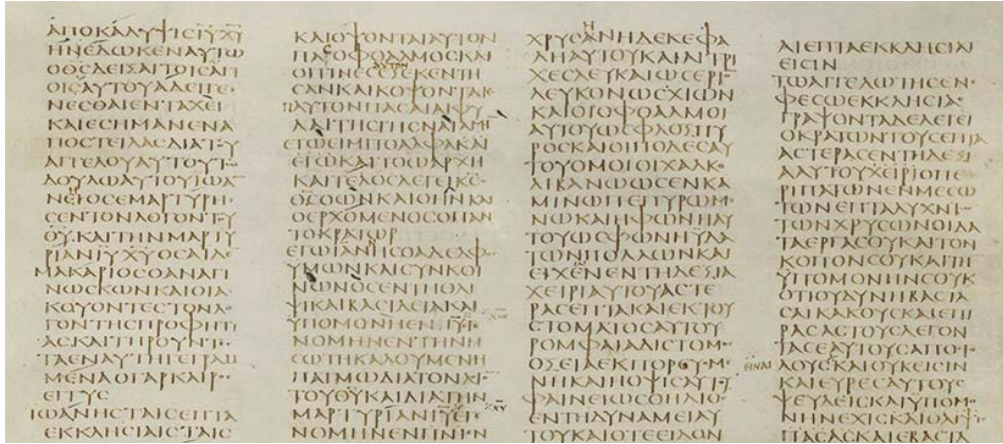 ΑΠΟΚΑΛΥΨΙCΙΥΧΥ
ΗΝΕΔΩΚΕΝΑΥΤΩ
ΟΘCΔΕΙΞΑΙΤΟΙCΑΓΙ
ΟΙCΑΥΤΟΥΑΔΕΙΓΕ
ΝΕCΘΑΙΕΝΤΑΧΕΙ
ΚΑΙΕCΗΜΑΝΕΝΑ
ΠΟCΤΕΙΛΑCΔΙΑΤΥ
ΑΓΓΕΛΟΥΑΥΤΟΥΤΩ
ΔΟΥΛΩΑΥΤΟΥΙΩΑ
ΝΕΙΟCΕΜΑΡΤΥΡΗ
CΕΝΤΟΝΛΟΓΟΝΤΥ
ΘΥ·ΚΑΙΤΗΝΜΑΡΤΥ
ΡΙΑΝΙΥΧΥΟCΑΙΔΕ
ΜΑΚΑΡΙΟCΟΑΝΑΓΙ
ΝΩCΚΩΝΚΑΙΟΙΑ
ΚΟΥΟΝΤΕCΤΟΝΛΟ
ΓΟΝΤΗCΠΡΟΦΗΤΙ
ΑCΚΑΙΤΗΡΟΥΝΤΕC
ΤΑΕΝΑΥΤΗΓΕΓΡΑΜ
ΜΕΝΑΟΓΑΡΚΑΙΡΟC
ΕΓΓΥC
ΙΩΑΝΗCΤΑΙCΕΠΤΑ
ΕΚΚΛΗCΙΑΙCΤΑΙC
ΚΑΙΟΨΟΝΤΑΙΑΥΤΟΝ
ΠΑCΟΦΘΑΛΜΟCΚΑΙ
ΟΙΤΙΝΕCΕΞΕΚΕΝΤΗ
CΑΝΚΑΙΚΟΨΟΝΤΑΙΕ
ΠΑΥΤΟΝΠΑCΑΙΑΙΦΥ
ΛΑΙΤΗCΓΗCΝΑΙΑΜΗ
ΕΓΩΕΙΜΙΤΟΑΛΦΑΚΑΙ
ΕΓΩΚΑΙΤΟΩΑΡΧΗ
ΚΑΙΤΕΛΟCΛΕΓΕΙΚC
ΟΘCΟΩΝΚΑΙΟΗΝΚΑΙ
ΟΕΡΧΟΜΕΝΟCΟΠΑΝ
ΤΟΚΡΑΤΩΡ
ΕΓΩΙΩΑΝΗCΟΑΔΕΛΦΟC
ΥΜΩΝΚΑΙCΥΝΚΟΙ
ΝΩΝΟCΕΝΤΗΘΛΙ
ΨΙΚΑΙΒΑCΙΛΕΙΑΚΑΙ
ΥΠΟΜΟΝΗΕΝΙΥΕΓΕ
ΝΟΜΗΝΕΝΤΗΝΗ
CΩΤΗΚΑΛΟΥΜΕΝΗ
ΠΑΤΜΩΔΙΑΤΟΝΛΟΓΟ
ΤΟΥΘΥΚΑΙΔΙΑΤΗΝ
ΜΑΡΤΥΡΙΑΝΙΥΕΓΕ
ΝΟΜΗΝΕΝΠΝΙΕΝ
ΧΡΥCΑΝΗΔΕΚΕΦΑ
ΛΗΑΥΤΟΥΚΑΙΑΙΤΡΙ
ΧΕCΛΕΥΚΑΙΩCΕΡΙΟ
ΛΕΥΚΟΝΩCΧΙΩΝ
ΚΑΙΟΙΟΦΘΑΛΜΟΙ
ΑΥΤΟΥΩCΦΛΟΞΠΥ
ΡΟCΚΑΙΟΙΠΟΔΕCΑΥ
ΤΟΥΟΜΟΙΟΙΧΑΛΚΟ
ΛΙΒΑΝΩΩCΕΝΚΑ
ΜΙΝΩΠΕΠΥΡΩΜΕ
ΝΩΚΑΙΗΦΩΝΗΑΥ
ΤΟΥΩCΦΩΝΗΥΔΑ
ΤΩΝΠΟΛΛΩΝΚΑΙ
ΕΙΧΕΝΕΝΤΗΔΕΞΙΑ
ΧΕΙΡΙΑΥΤΟΥΑCΤΕ
ΡΑCΕΠΤΑΚΑΙΕΚΤΟΥ
CΤΟΜΑΤΟCΑΥΤΟΥ
ΡΟΜΦΑΙΑΔΙCΤΟΜΟC
ΟΞΕΙΑΕΚΠΟΡΕΥΟΜΕ
ΝΗΚΑΙΗΟΨΙCΑΥΤΟΥ
ΦΑΙΝΕΙΩCΟΗΛΙΟC
ΕΝΤΗΔΥΝΑΜΕΙΑΥ
ΤΟΥΚΑΙΟΤΕΕΙΔΟΝ
ΑΙΕΠΤΑΕΚΚΛΗCΙΑΙ
ΕΙCΙΝ
ΤΩΑΓΓΕΛΩΤΗCΕΝΕ
ΦΕCΩΕΚΚΛΗCΙΑC
ΓΡΑΨΟΝΤΑΔΕΛΕΓΕΙ
ΟΚΡΑΤΩΝΤΟΥCΕΠΤΑ
ΑCΤΕΡΑCΕΝΤΗΔΕΞΙ
ΑΑΥΤΟΥΧΕΙΡΙΟΠΕ
ΡΙΠΑΤΩΝΕΝΜΕCΩ
ΤΩΝΕΠΤΑΛΥΧΝΙΩ
ΤΩΝΧΡΥCΩΝΟΙΔΑ
ΤΑΕΡΓΑCΟΥΚΑΙΤΟΝ
ΚΟΠΟΝCΟΥΚΑΙΤΗ
ΥΠΟΜΟΝΗΝCΟΥΚ
ΟΤΙΟΥΔΥΝΗΒΑCΤΑ
CΑΙΚΑΚΟΥCΚΑΙΕΠΙ
ΡΑCΑCΤΟΥCΛΕΓΟΝ
ΤΑCΕΑΥΤΟΥCΑΠΟCΤΟ
ΕΙΝΑΙ
ΛΟΥCΚΑΙΟΥΚΕΙCΙΝ
ΚΑΙΕΥΡΕCΑΥΤΟΥC
ΨΕΥΔΕΙCΚΑΙΥΠΟΜΟ
ΝΗΝΕΧΙCΚΑΙΘΛΙΨΙC
ΠΑCΑCΚΑΙΕΒΑCΤΑ